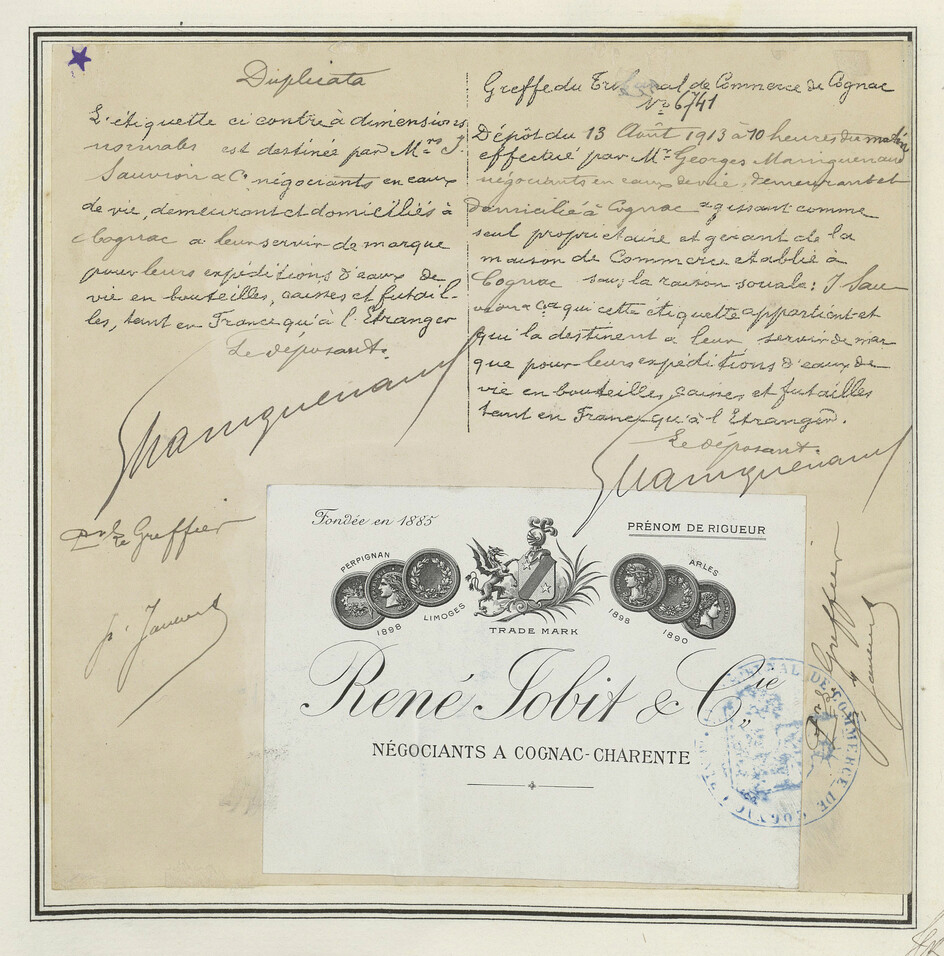 Duplicata
L'étiquette ci contre à dimensions
normales est destinée par Mrs J.
Sauvion & Cie négociants en eaux
de vie, demeurant et domiciliés à
Cognac a leur servir de marque
pour leurs expéditions d'eaux de
vie en bouteilles, caisses et futail-
les, tant en France qu'à l'Etranger
Le déposant.
Greffe du Tribunal de Commerce de Cognac
No 6741
Dépôt du 13 Août 1913 à 10 heures du matin
effectué par Mr Georges
négociants en eaux de vie, demeurant et
domicilié à Cognac agissant comme
seul propriétaire et gérant de la
maison de Commerce établie à
Cognac sous la raison sociale: J Sau
vion & Cie qui cette étiquette appartient et
qui la destinent a leur servir de mar
que pour leurs expéditions d'eaux de
vie en bouteilles, caisses et futailles
tant en France qu'à l'Etranger.
Le déposant.
le Greffier
Fondée en 1885
PRÉNOM DE RIGUEUR
PERPIGNAN
1898
LIMOGES
TRADE MARK
ARLES
1898
1890
René Jobit & Cie
NÉGOCIANTS A COGNAC-CHARENTE
Greffier
TRIBUNAL DE COMMERCE DE COGNAC